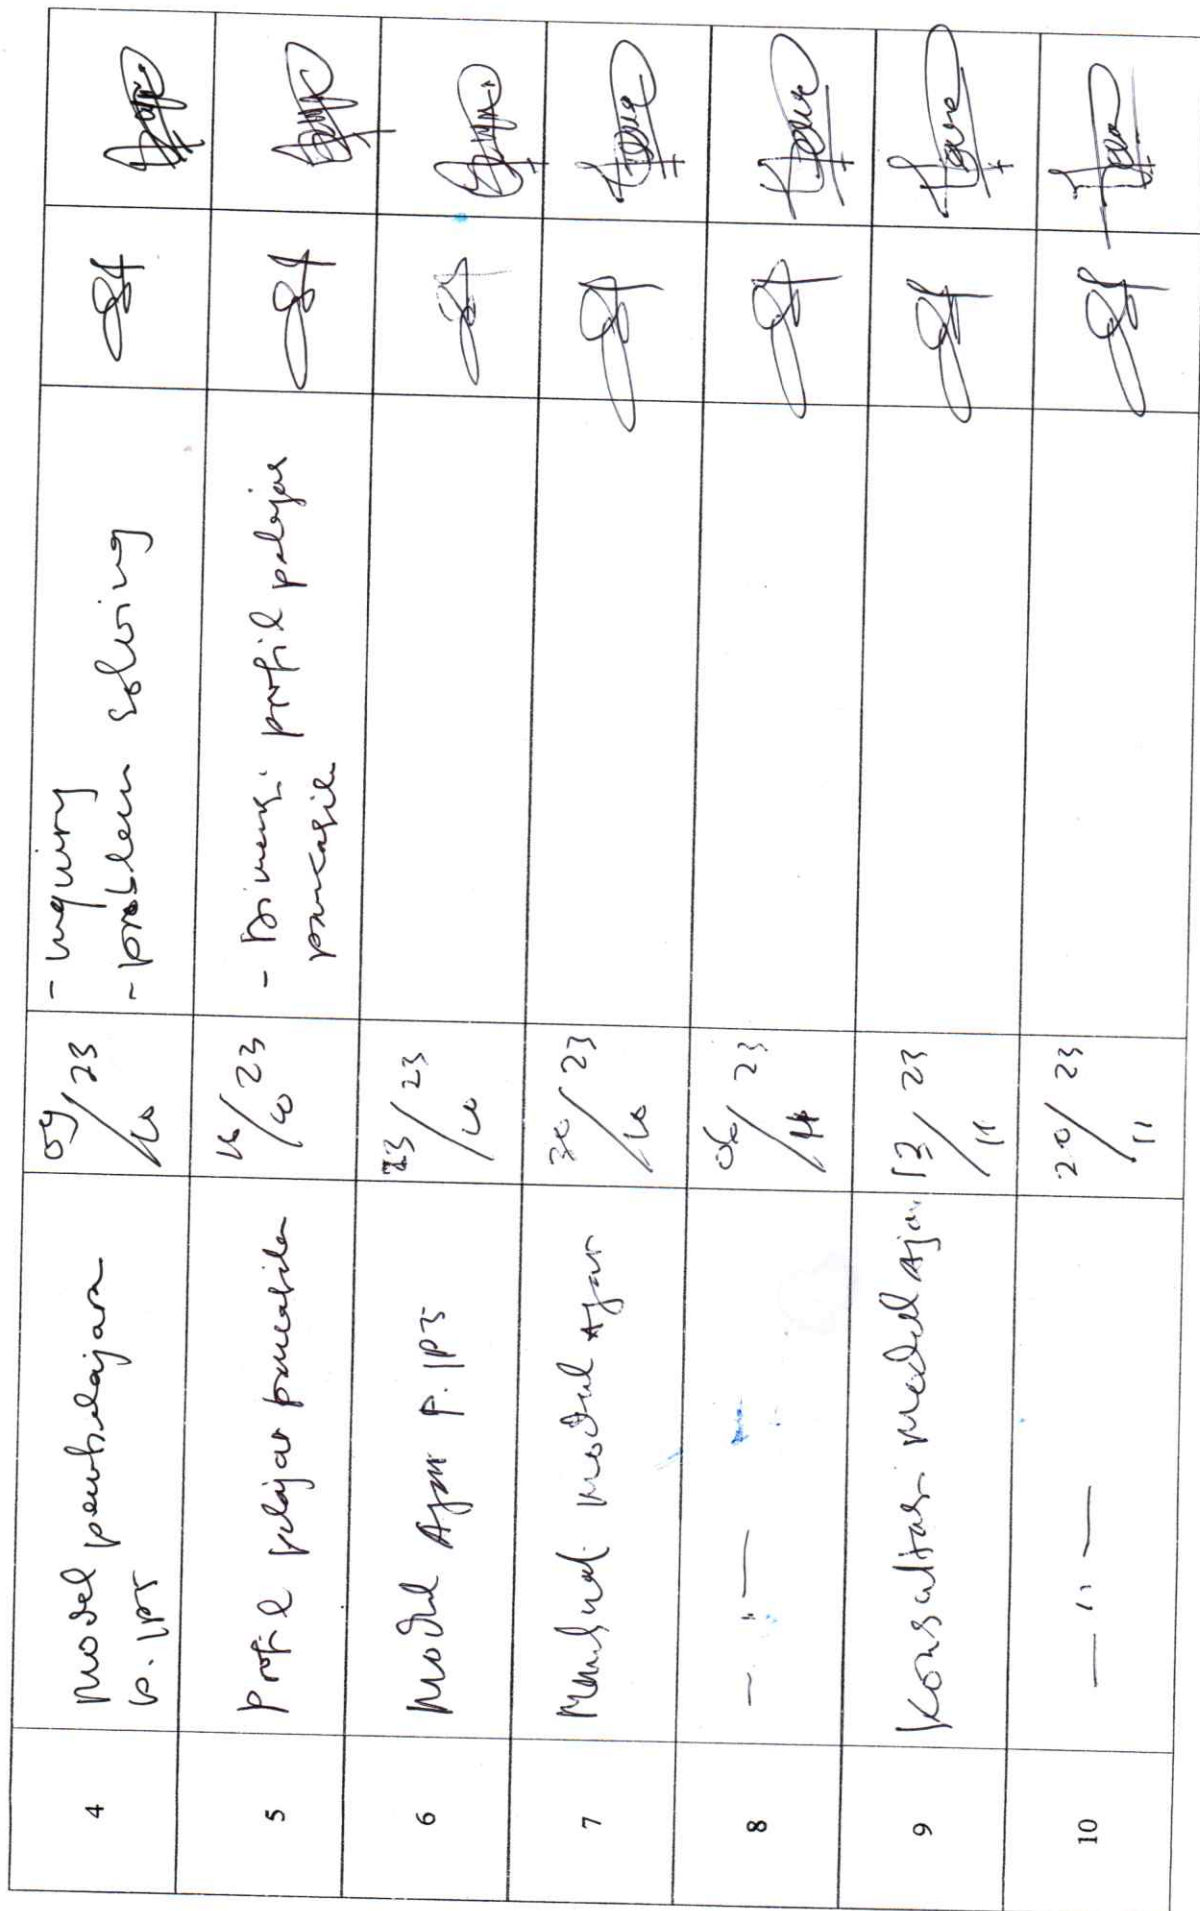 4
Model pembelajara
P. IPS
09/10 23
- inquiry
- problem solving
5
Profil pelajar pancasila
16/10 23
- Dimensi profil pelajar
pancasila
6
Modul Ajar P. IPS
23/10 23
7
modul Ajar
30/10 23
8
— " —
06/11 23
9
Konsultasi Modul Ajar
13/11 23
10
— " —
20/11 23